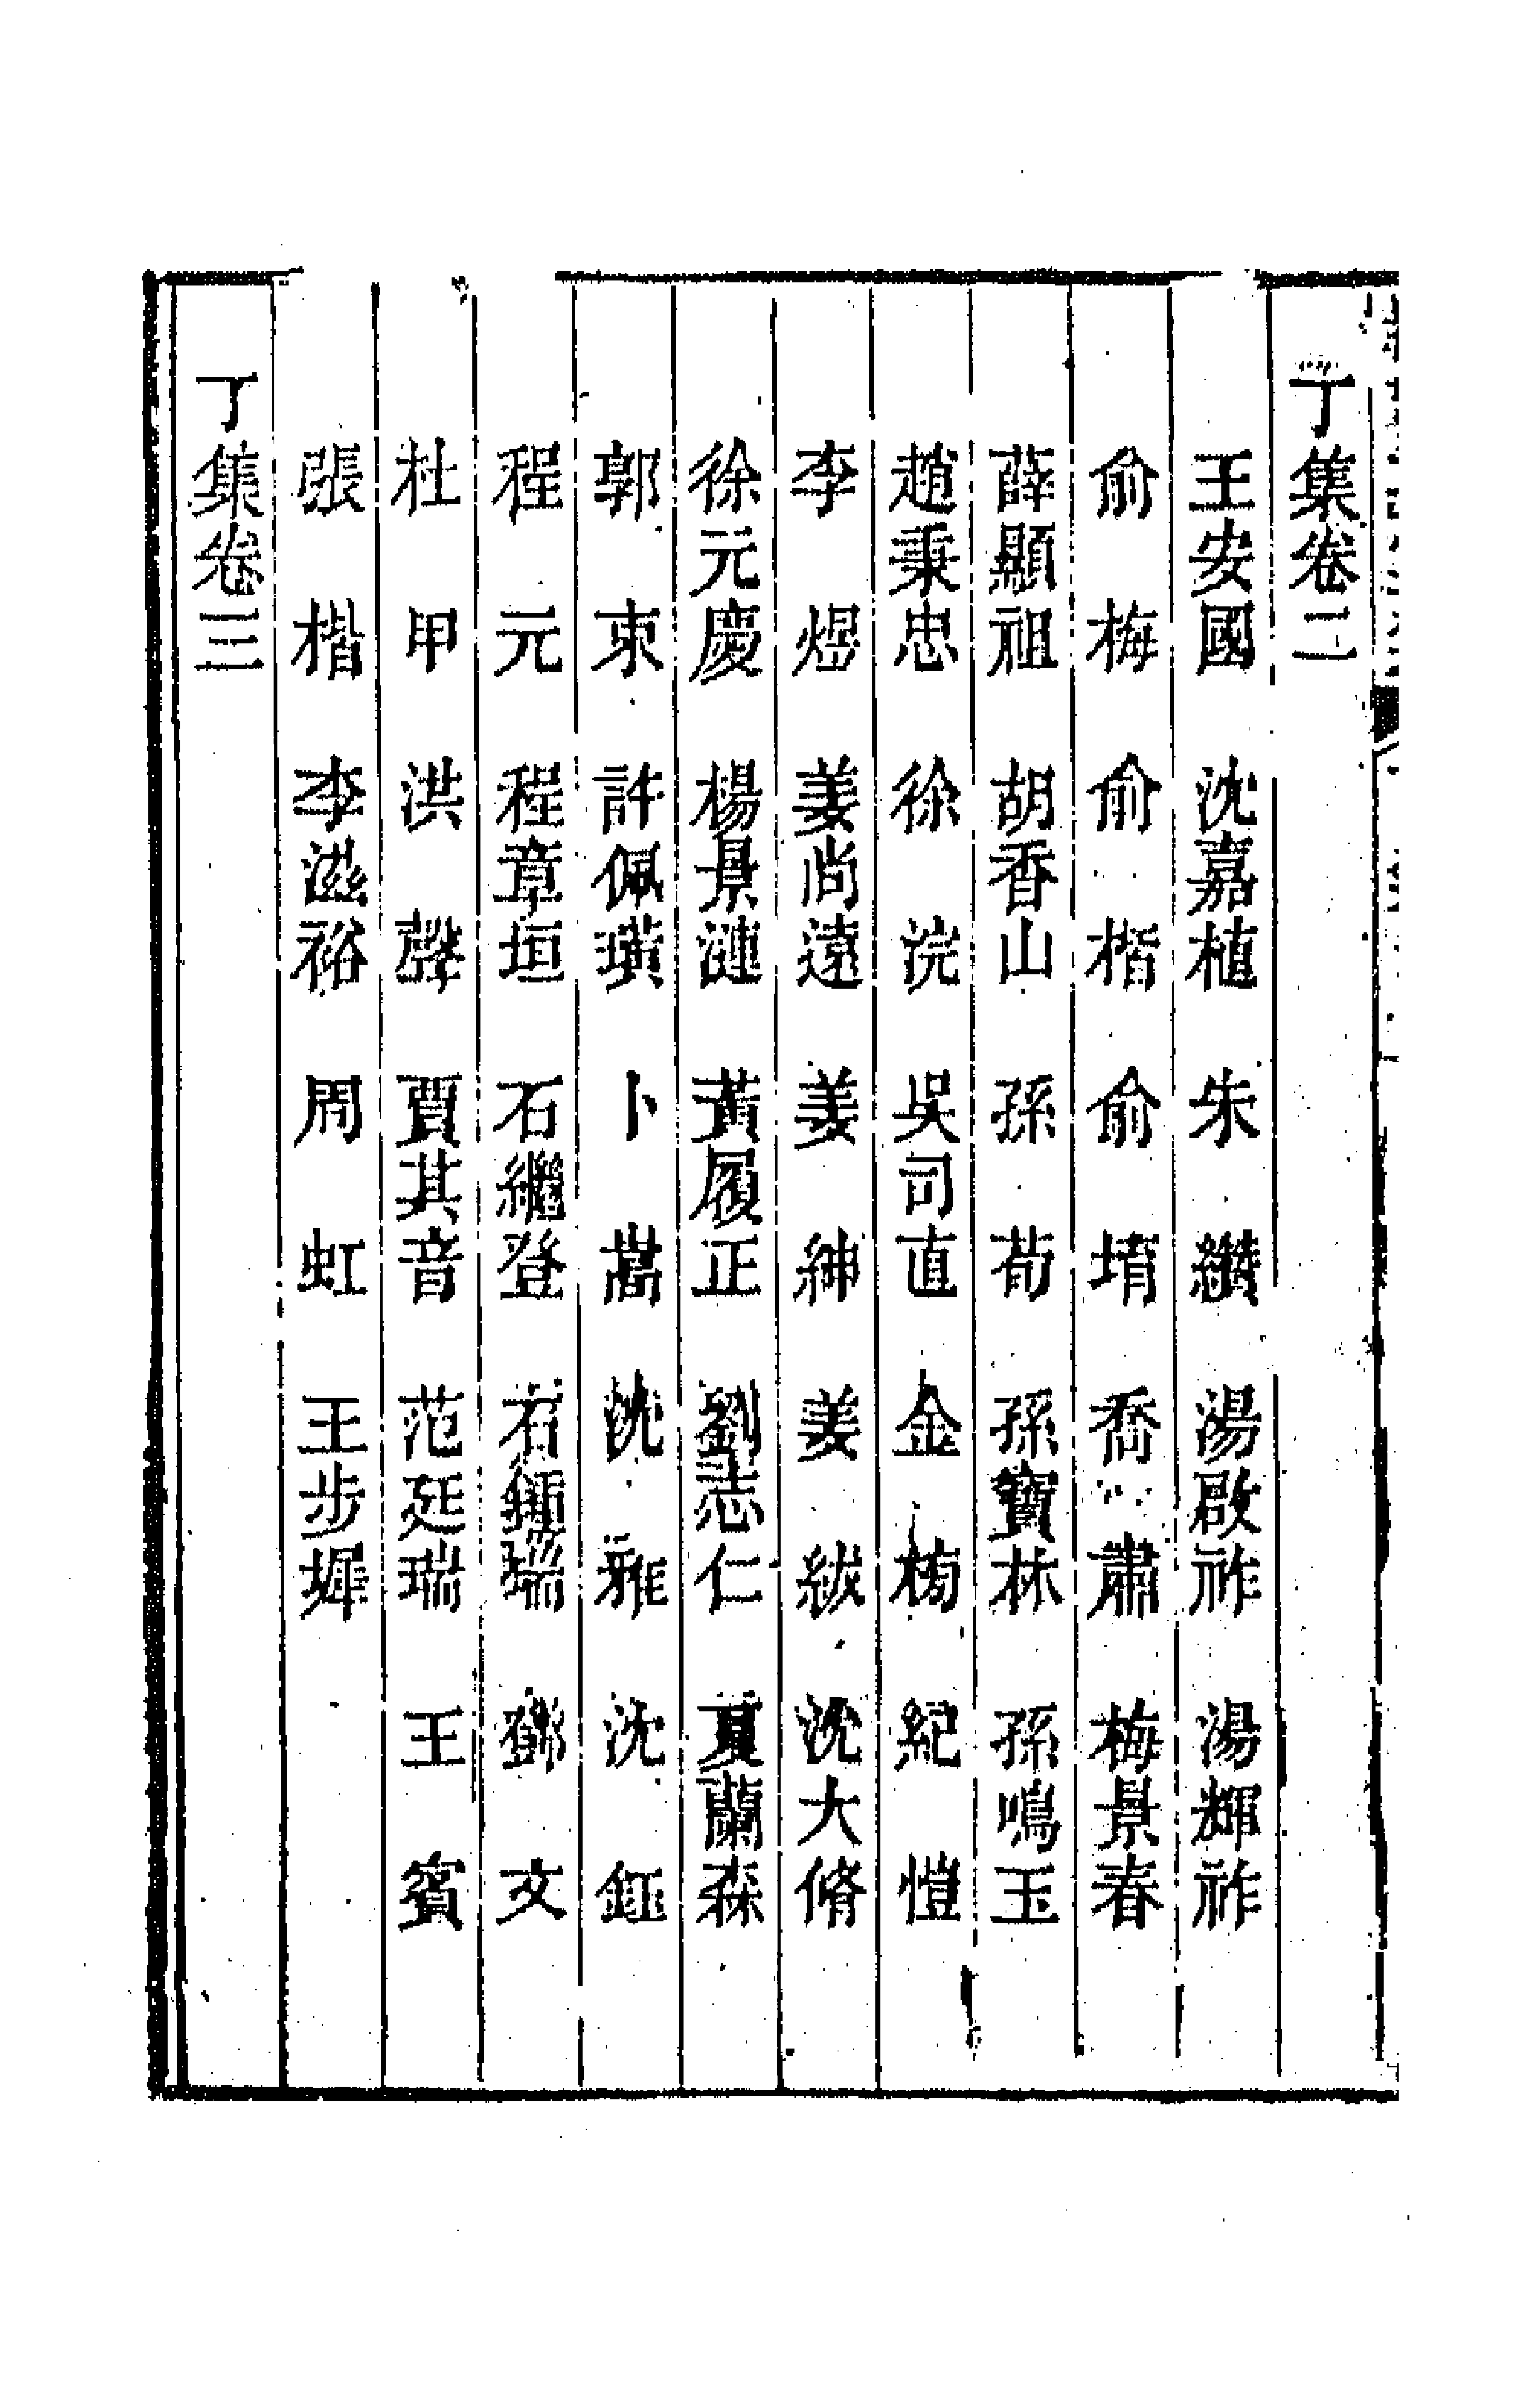 丁集卷二
王安國　沈嘉植　朱纘　湯啟祚　湯輝祚
俞梅　俞楷　俞堉　喬肅　梅景春
薛顯祖　胡香山　孫荀　孫寶林　孫鳴玉
趙秉忠　徐浣　吳司直　金栴　紀愷
李煜　姜尚遠　姜紳　姜紱　沈大脩
徐元慶　楊景漣　黃履正　劉志仁　夏蘭森
郭束　許佩璜　卜蒿　沈雅　沈鈺
程元　程章垣　石繼登　石瑞　鄧文
杜甲　洪聲　賈其音　范廷瑞　王賓
張楷　李滋裕　周虹　王步墀
丁集卷三